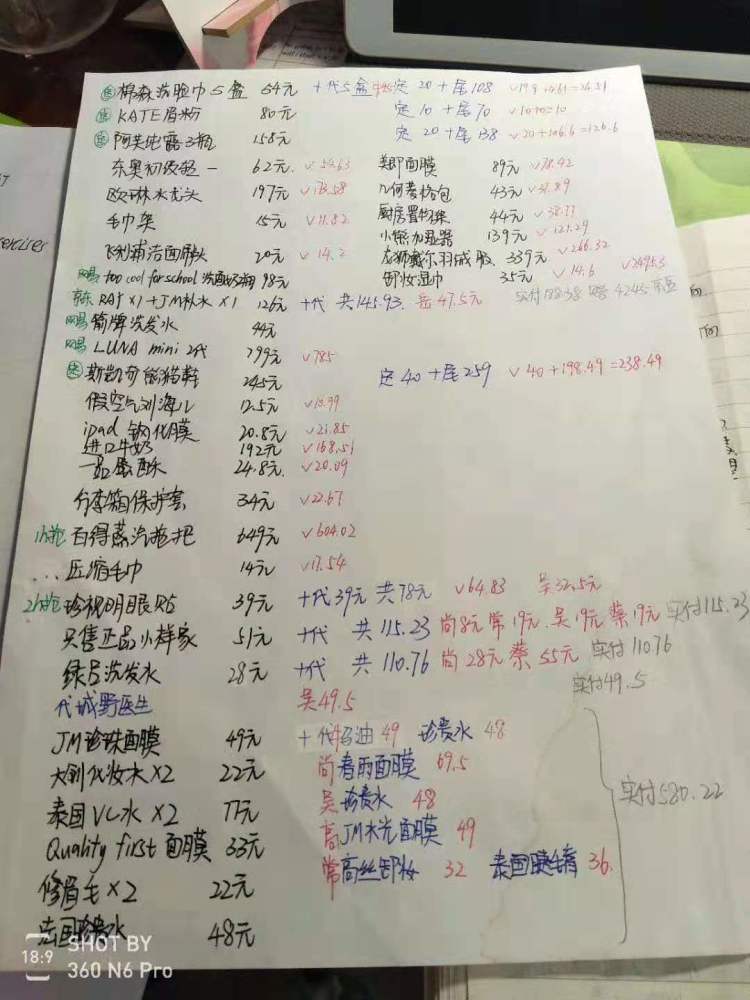 定 棉森洗脸巾5盒 64元 +代5盒 定 20+尾108
定 KATE眉粉 80元 定 10+尾70
定 阿芙纯露3瓶 158元 定 20+尾138 √20+106.6=126.6
东奥初级轻一 62元 美即面膜 89元 √78.42
欧琳水龙头 197元 几何菱格包 43元 √37.89
毛巾架 15元 √11.82 厨房置物架 44元
飞利浦洁面刷头 20元 √14.2 小熊加湿器 139元 √121.29
龙狮戴尔羽绒服 339元 √266.32
网易 too cool for school 98元 卸妆湿巾 35元 √14.6 √249.53
京东 RAY×1+JM补水×1 126元 +代 共145.93 岳47.5元
网易 箭牌洗发水 44元
网易 LUNA mini 2代 799元 √785
定 斯凯奇熊猫鞋 245元 定40+尾259 √40+198.49=238.49
假空气刘海儿 12.5元 √10.99
ipad 钢化膜 20.8元 √21.85
进口牛奶 192元 √168.51
一品蛋酥 24.8元 √20.09
行李箱保护套 34元 √22.67
1h抢 百得蒸汽拖把 649元 √604.02
... 压缩毛巾 14元 √17.54
2h抢 珍视明眼贴 39元 +代39元 共78元 √64.83 吴32.5元
只售正品小样家 51元 +代 共115.23 尚8元 常19元 吴19元 蔡19元 实付115.23
绿吕洗发水 28元 +代 共110.76 尚28元 蔡55元 实付110.76
代城野医生 吴49.5 实付49.5
JM珍珠面膜 49元 49 珍贵水 48
大创化妆水×2 22元 尚春雨面膜 69.5
泰国VC水×2 77元 吴珍贵水 48 实付580.22
Quality first 面膜 33元 高JM水光面膜 49
修眉毛×2 22元 常高丝卸妆 32 泰国睫毛膏 36
法国珍贵水 48元
18:9 SHOT BY
360 N6 Pro